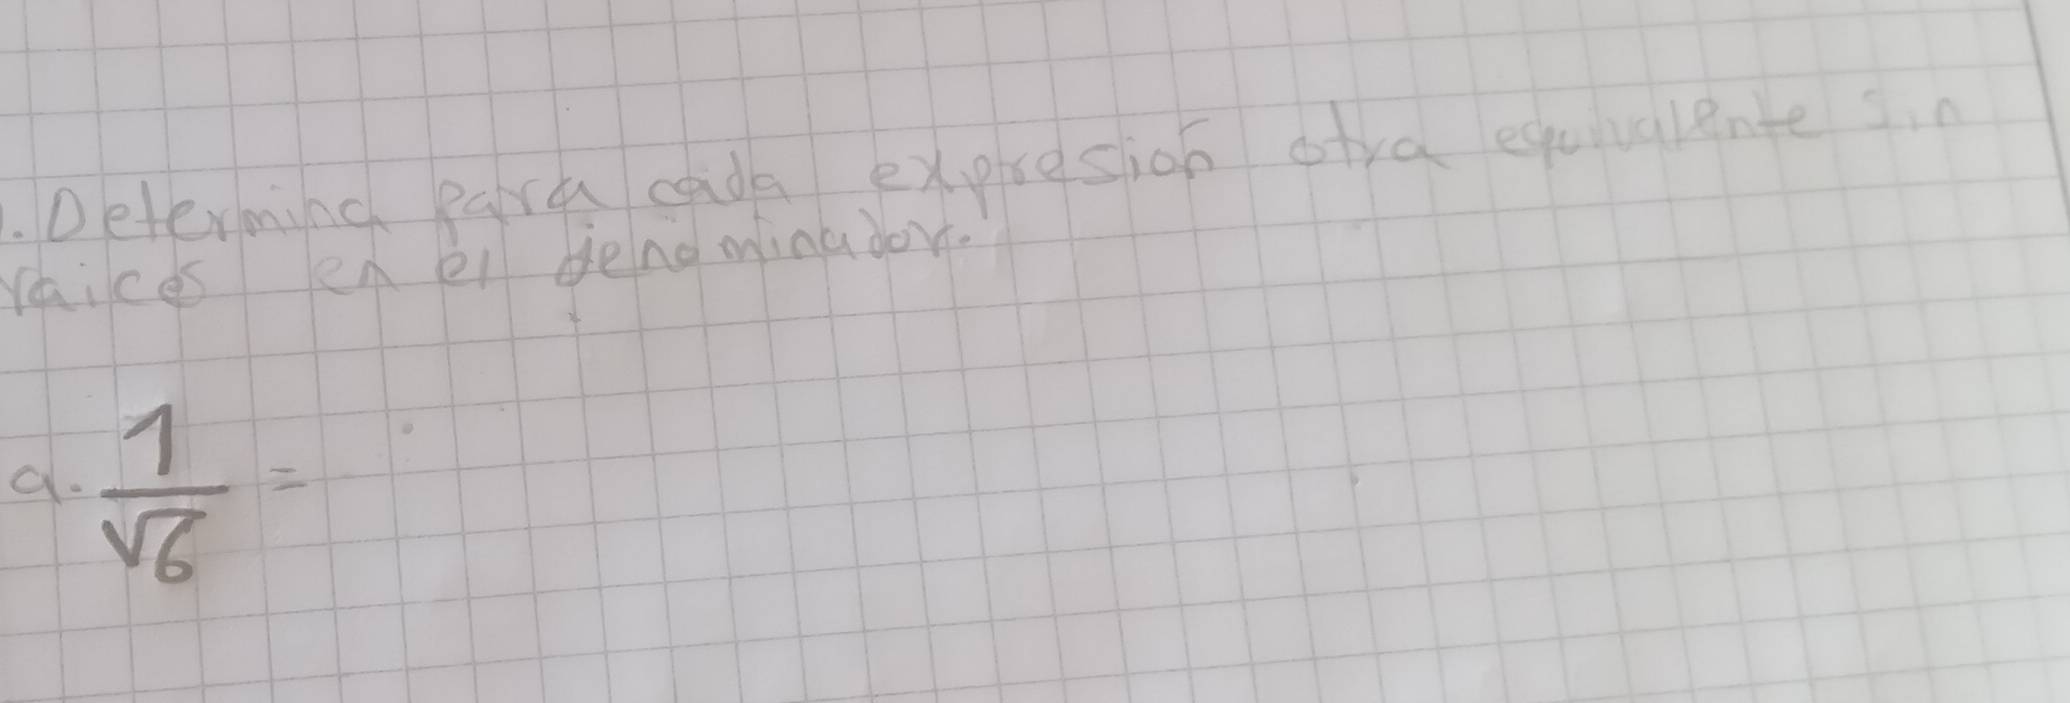 1. Determina para cada expresion otra equivalente sin
raices en el denominador.
a. 1/√6 =